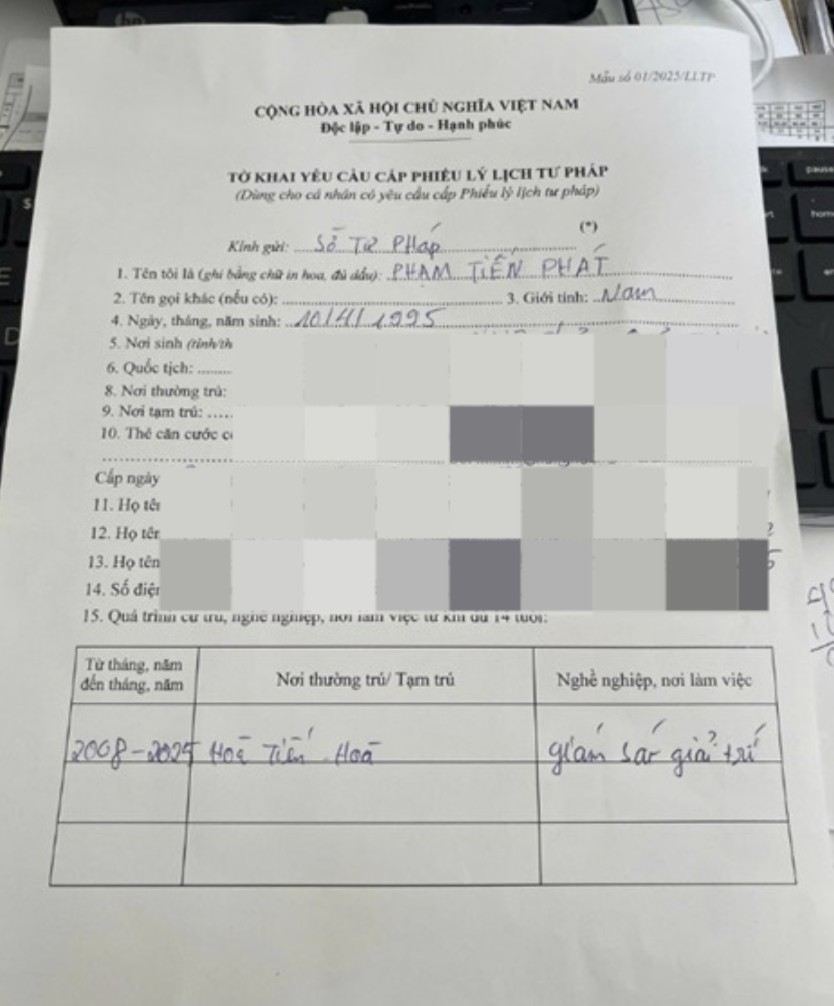 Mẫu số 01/2025/LLTP
CỘNG HÒA XÃ HỘI CHỦ NGHĨA VIỆT NAM
Độc lập - Tự do - Hạnh phúc
TỜ KHAI YÊU CẦU CẤP PHIẾU LÝ LỊCH TƯ PHÁP
(Dùng cho cá nhân có yêu cầu cấp Phiếu lý lịch tư pháp)
(*)
Kính gửi: Sở Tư Pháp
1. Tên tôi là (ghi bằng chữ in hoa, đủ dấu): PHẠM TIẾN PHÁT
2. Tên gọi khác (nếu có): 3. Giới tính: Nam
4. Ngày, tháng, năm sinh: 10/4/1995
5. Nơi sinh (tỉnh/th
6. Quốc tịch:
8. Nơi thường trú:
9. Nơi tạm trú:
10. Thẻ căn cước c
Cấp ngày
11. Họ tên
12. Họ tên
13. Họ tên
14. Số điện
15. Quá trình cư trú, nghề nghiệp, nơi làm việc từ khi đủ 14 tuổi:
Từ tháng, năm đến tháng, năm
Nơi thường trú/ Tạm trú
Nghề nghiệp, nơi làm việc
2008-2025
Tiến Hoà
giám sát giải trí